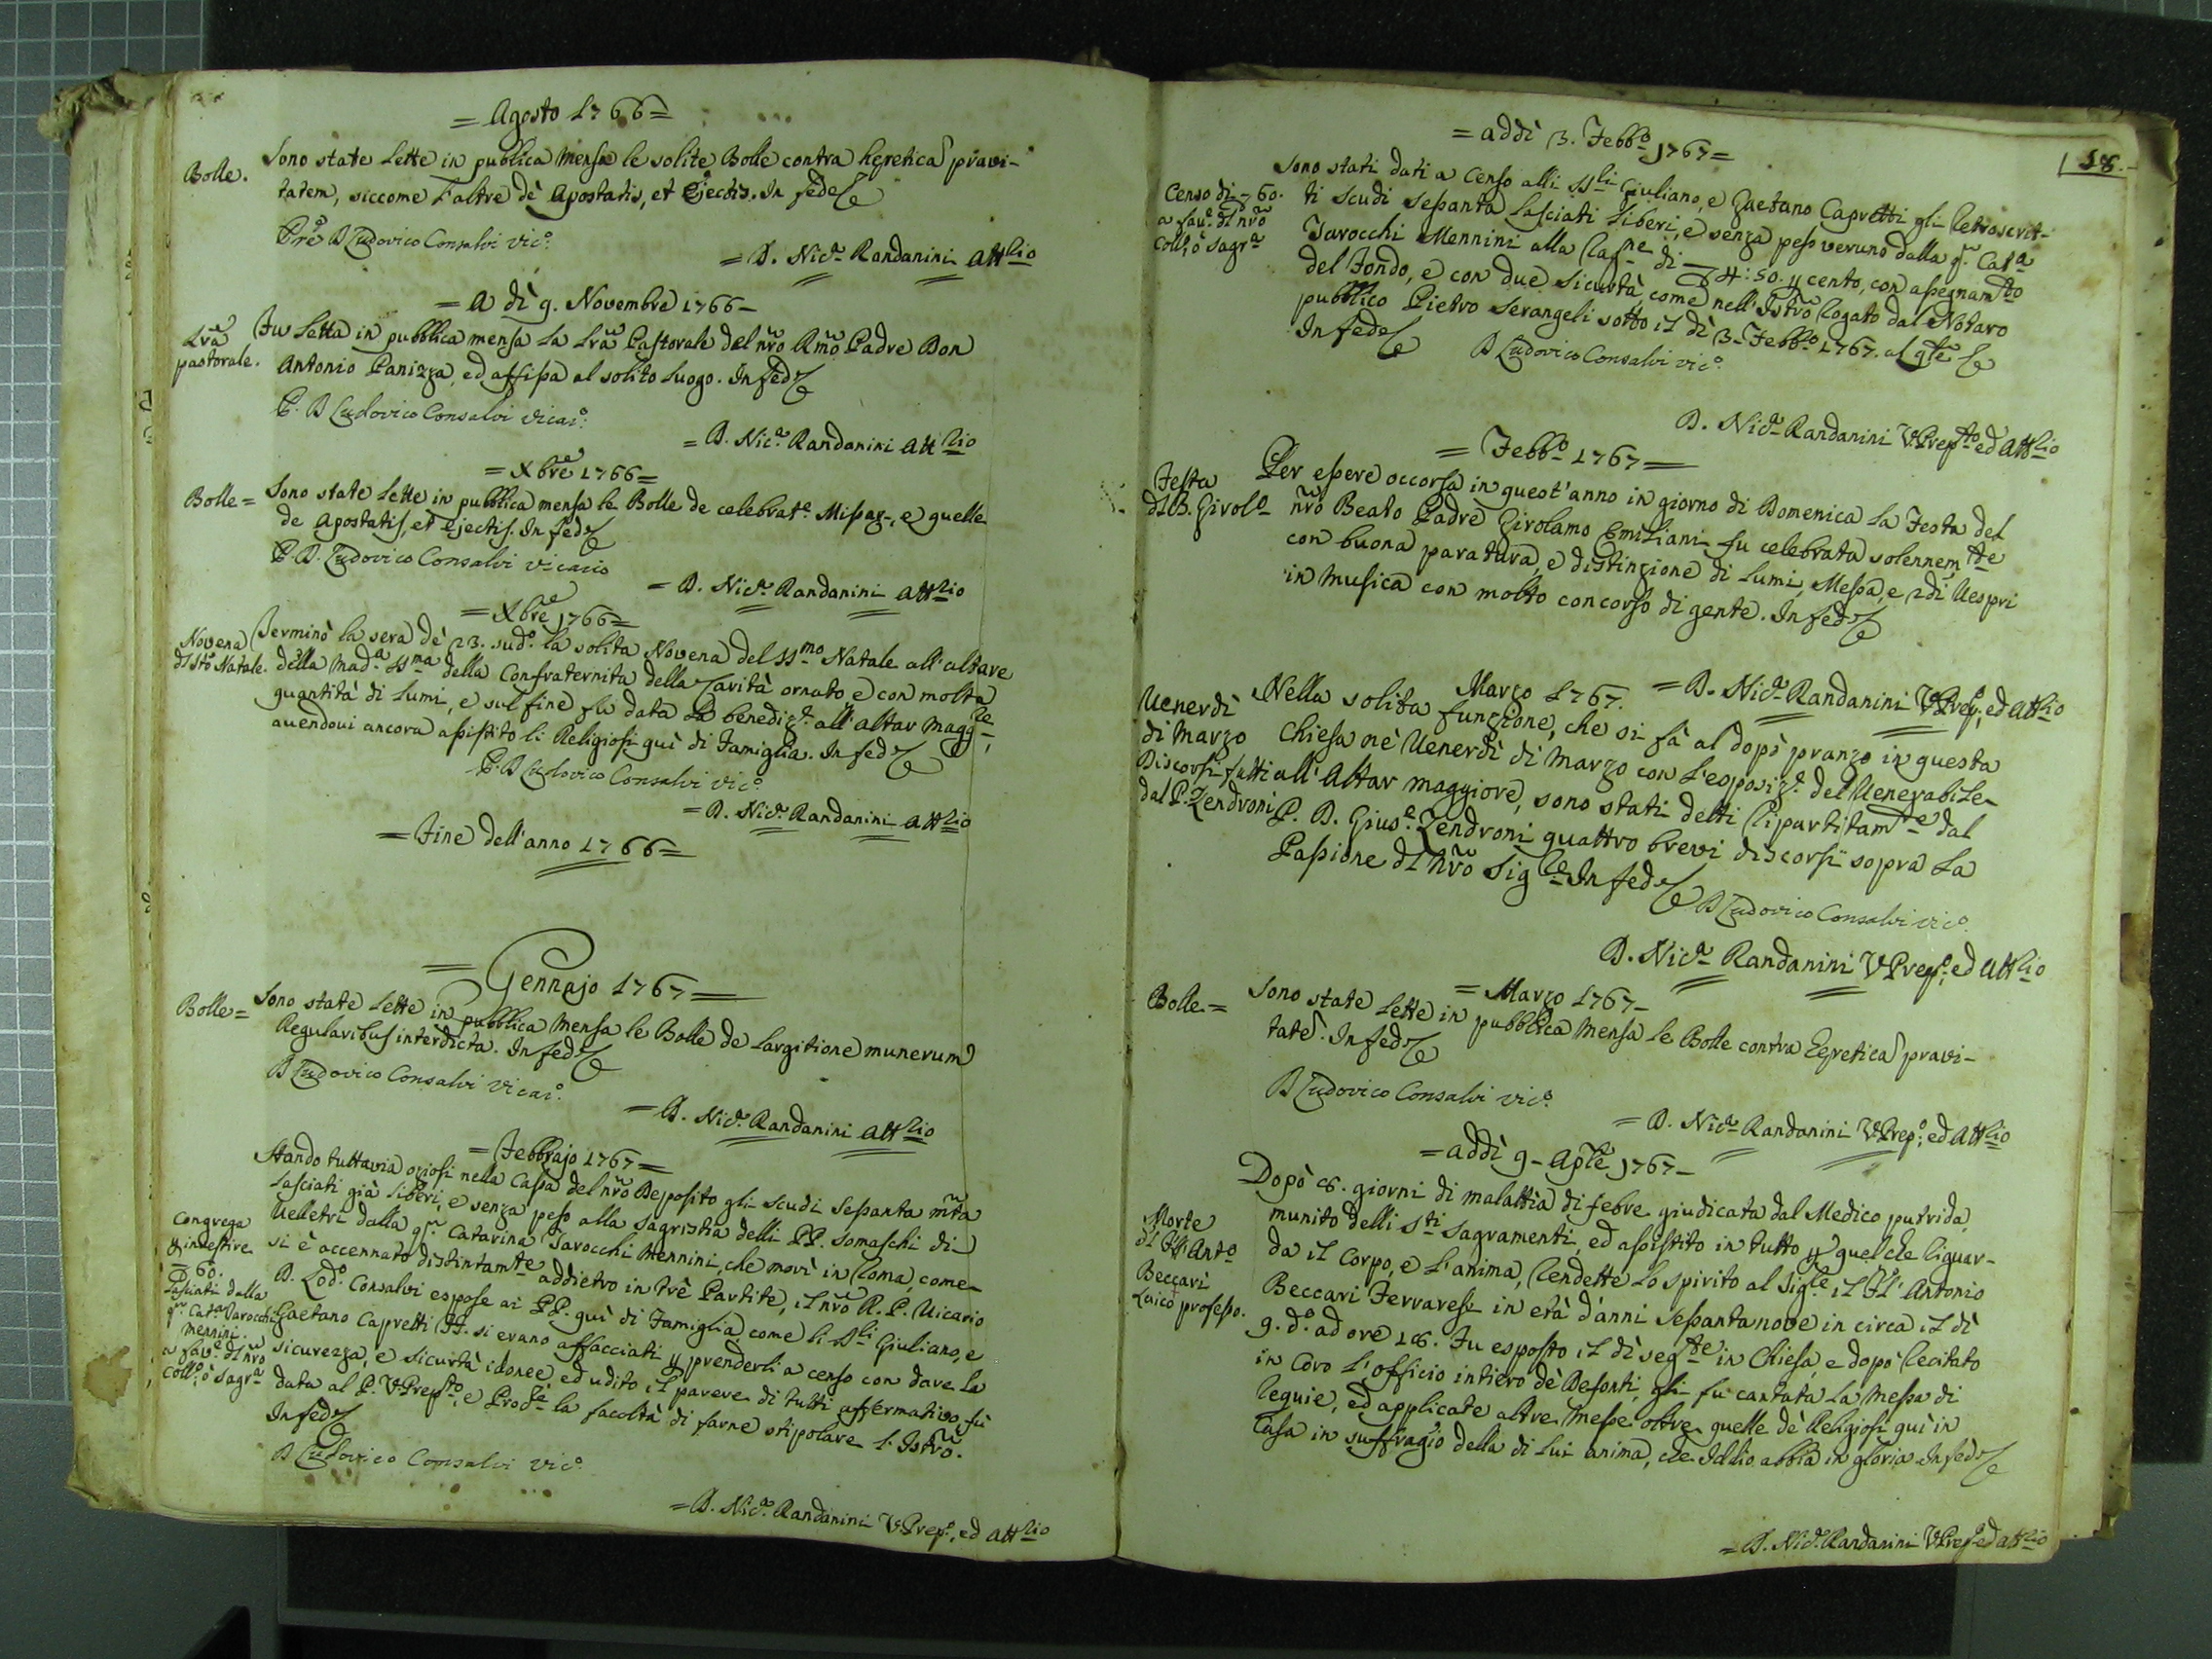 = Agosto 1766 =
Bolle.
Sono state lette in publica mensa le solite Bolle contra hęreticā pravi-
tatem, siccome l'altre dè Apostatis, et Ejectis. In fede
D Ludovico Consalvi Vic.o
= D. Nic.a Randanini Att.rio
= A dì 9. Novembre 1766 -
Lrã
pastorale.
Fu letta in pubblica mensa la Lrã Pastorale del nrõ Rmõ Padre Don
Antonio Panizza, ed affissa al solito luogo. In fede
P. D Ludovico Consalvi Vicar.o
= D. Nic.a Randanini Att.rio
= Xbre 1766 =
Bolle =
Sono state lette in pubblica mensa le Bolle de celebrat.e Missar., e quelle
de Apostatis, et Ejectis. In fede
P. D. Ludovico Consalvi Vicario
= D. Nic.a Randanini Att.rio
= Xbre 1766 =
Novena
dl Sto Natale.
Terminò la sera dè 23. sud.o la solita Novena del SS.mo Natale all'altare
della Mad.a SS.ma della Confraternita della Carità ornato e con molta
quantità di lumi, e sul fine fu data la benediz.e all'Altar Magg.re,
avendovi ancora assistito li Religiosi quì di Famiglia. In fede
P. D Ludovico Consalvi Vic.o
= D. Nic.a Randanini Att.rio
= Fine dell'anno 1766 =
= Gennajo 1767 =
Bolle =
Sono state lette in pubblica mensa le Bolle de largitione munerum
Regularibus interdicta. In fede
D Ludovico Consalvi Vicar.o
= D. Nic.a Randanini Att.rio
= Febbrajo 1767 =
Congrega
p investire
= 60.
lasciati dalla
qm Cat.a Tarocchi
Mennini.
a fav.e dl nrõ
Coll.o, ò Sagr.a
Stando tuttavia oziosi nella Cassa del nrõ Deposito gli scudi sessanta mta
lasciati già liberi, e senza peso alla Sagristia delli PP. Somaschi di
Velletri dalla qm Catarina Tarocchi Mennini, che morì in Roma, come
si è accennato distintam.te addietro in trè Partite, il nrõ R. P. Vicario
D. Lod.o Consalvi espose ai PP. quì di Famiglia, come li SS.ri Giuliano, e
Gaetano Capretti FF. si erano affacciati p prenderli a censo con dare la
sicurezza, e sicurtà idonee, ed udito il parere di tutti affermativo, fù
data al P. V.Prep.to, e Proc.re la facoltà di farne stipolare l'Istrõ.
In fede
D Ludovico Consalvi Vic.o
= D. Nic.a Randanini V.Prep.o, ed Att.rio
18.
= Addì 3. Febb.o 1767 =
Censo di = 60.
a fav.e di nrõ
Coll.o, ò Sagr.a
Sono stati dati a Censo alli SS.ri Giuliano, e Gaetano Capretti gli retroscrit-
ti scudi sessanta lasciati liberi, e senza peso veruno dalla qm Cat.a
Tarocchi Mennini alla rag.ne di 4:50. p cento, con assegnam.to
del Fondo, e con due sicurtà, come nell'Istrõ rogato dal Notaro
pubblico Pietro Serangeli sotto il dì 3. Febb.o 1767. al qle
In fede
D Ludovico Consalvi Vic.o
D. Nic.a Randanini V.Prep.to ed Att.rio
= Febb.o 1767 =
Festa
dl B. Girol.o
Per essere occorsa in quest'anno in giorno di Domenica la Festa del
nrõ Beato Padre Girolamo Emiliani fu celebrata solennem.te
con buona paratura, e distinzione di lumi, Messa, e 2di Vespri
in musica con molto concorso di gente. In fede
= D. Nic.a Randanini V.Prep.o, ed Att.rio
Marzo 1767.
Venerdì
di Marzo
Discorsi fatti
dal P. Zendroni
Nella solita funzione, che si fà al dopò pranzo in questa
Chiesa nè Venerdì di Marzo con l'esposiz.e del Venerabile
all'Altar maggiore, sono stati detti ripartitam.te dal
P. D. Gius.e Zendroni quattro brevi discorsi sopra la
Passione dl nrõ Sig.re In fede
D Ludovico Consalvi Vic.o
D. Nic.a Randanini V.Prep.o, ed Att.rio
= Marzo 1767 -
Bolle =
Sono state lette in pubblica mensa le Bolle contra Hęreticā pravi-
tatē. In fede
D Ludovico Consalvi Vic.o
= D. Nic.a Randanini V.Prep.o, ed Att.rio
= Addì 9 - Aprle 1767 -
Morte
dl Fr Ant.o
Beccari
Laico professo.
Dopò 8. giorni di malattia di febre giudicata dal Medico putrida,
munito delli S.ti Sagramenti, ed assistito in tutto p quel che riguar-
da il corpo, e l'anima, rendette lo spirito al Sig.re il Fr Antonio
Beccari Ferrarese in età d'anni sessantanove in circa il dì
9. d.o ad ore 18. Fu esposto il dì seg.te in Chiesa, e dopò recitato
in Coro l'officio intiero dè Defonti, gli fu cantata la Messa di
Requie, ed applicate altre Messe oltre quelle dè Religiosi quì in
Casa in suffragio della di lui anima, che Iddio abbia in gloria. In fede
= D. Nic.a Randanini V.Prep.o ed Att.rio